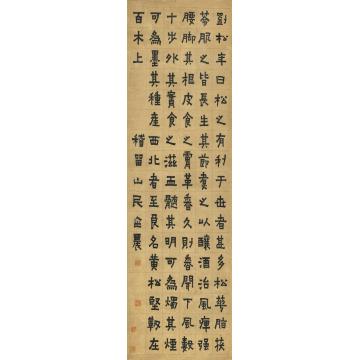 劉松年曰松之有利于世者甚多松華脂茯
苓服之皆長生其節煮之以釀酒治風痺強
腰腳其根皮食之膚革香久則香聞下風數
十步外其實食之滋血髓其明可為燭其煙
可為墨其種產西北者至良名黃松堅韌在
百木上 稽留山民金農